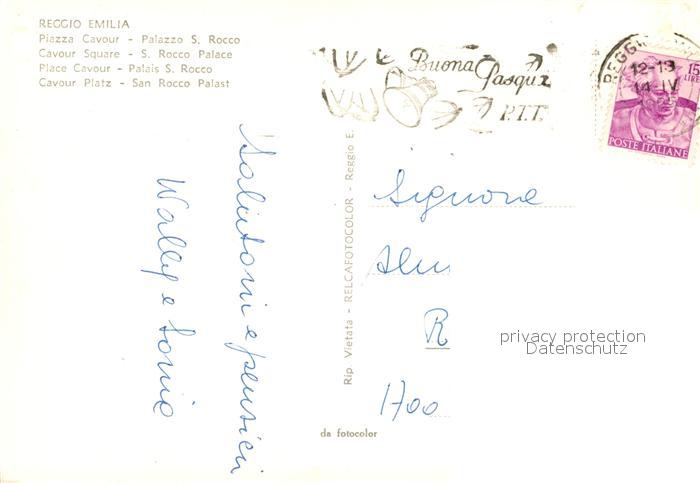 REGGIO EMILIA
Piazza Cavour - Palazzo S. Rocco
Cavour Square - S. Rocco Palace
Place Cavour - Palais S. Rocco
Cavour Platz - San Rocco Palast
Buona Pasqua
P.T.T.
REGGIO
12-13
14 IV
15
LIRE
POSTE ITALIANE
Salutoni e pensieri
Wally e Sonia
Rip. Vietata - RELCAFOTOCOLOR - Reggio E.
Signore
R
1700
privacy protection
Datenschutz
da fotocolor